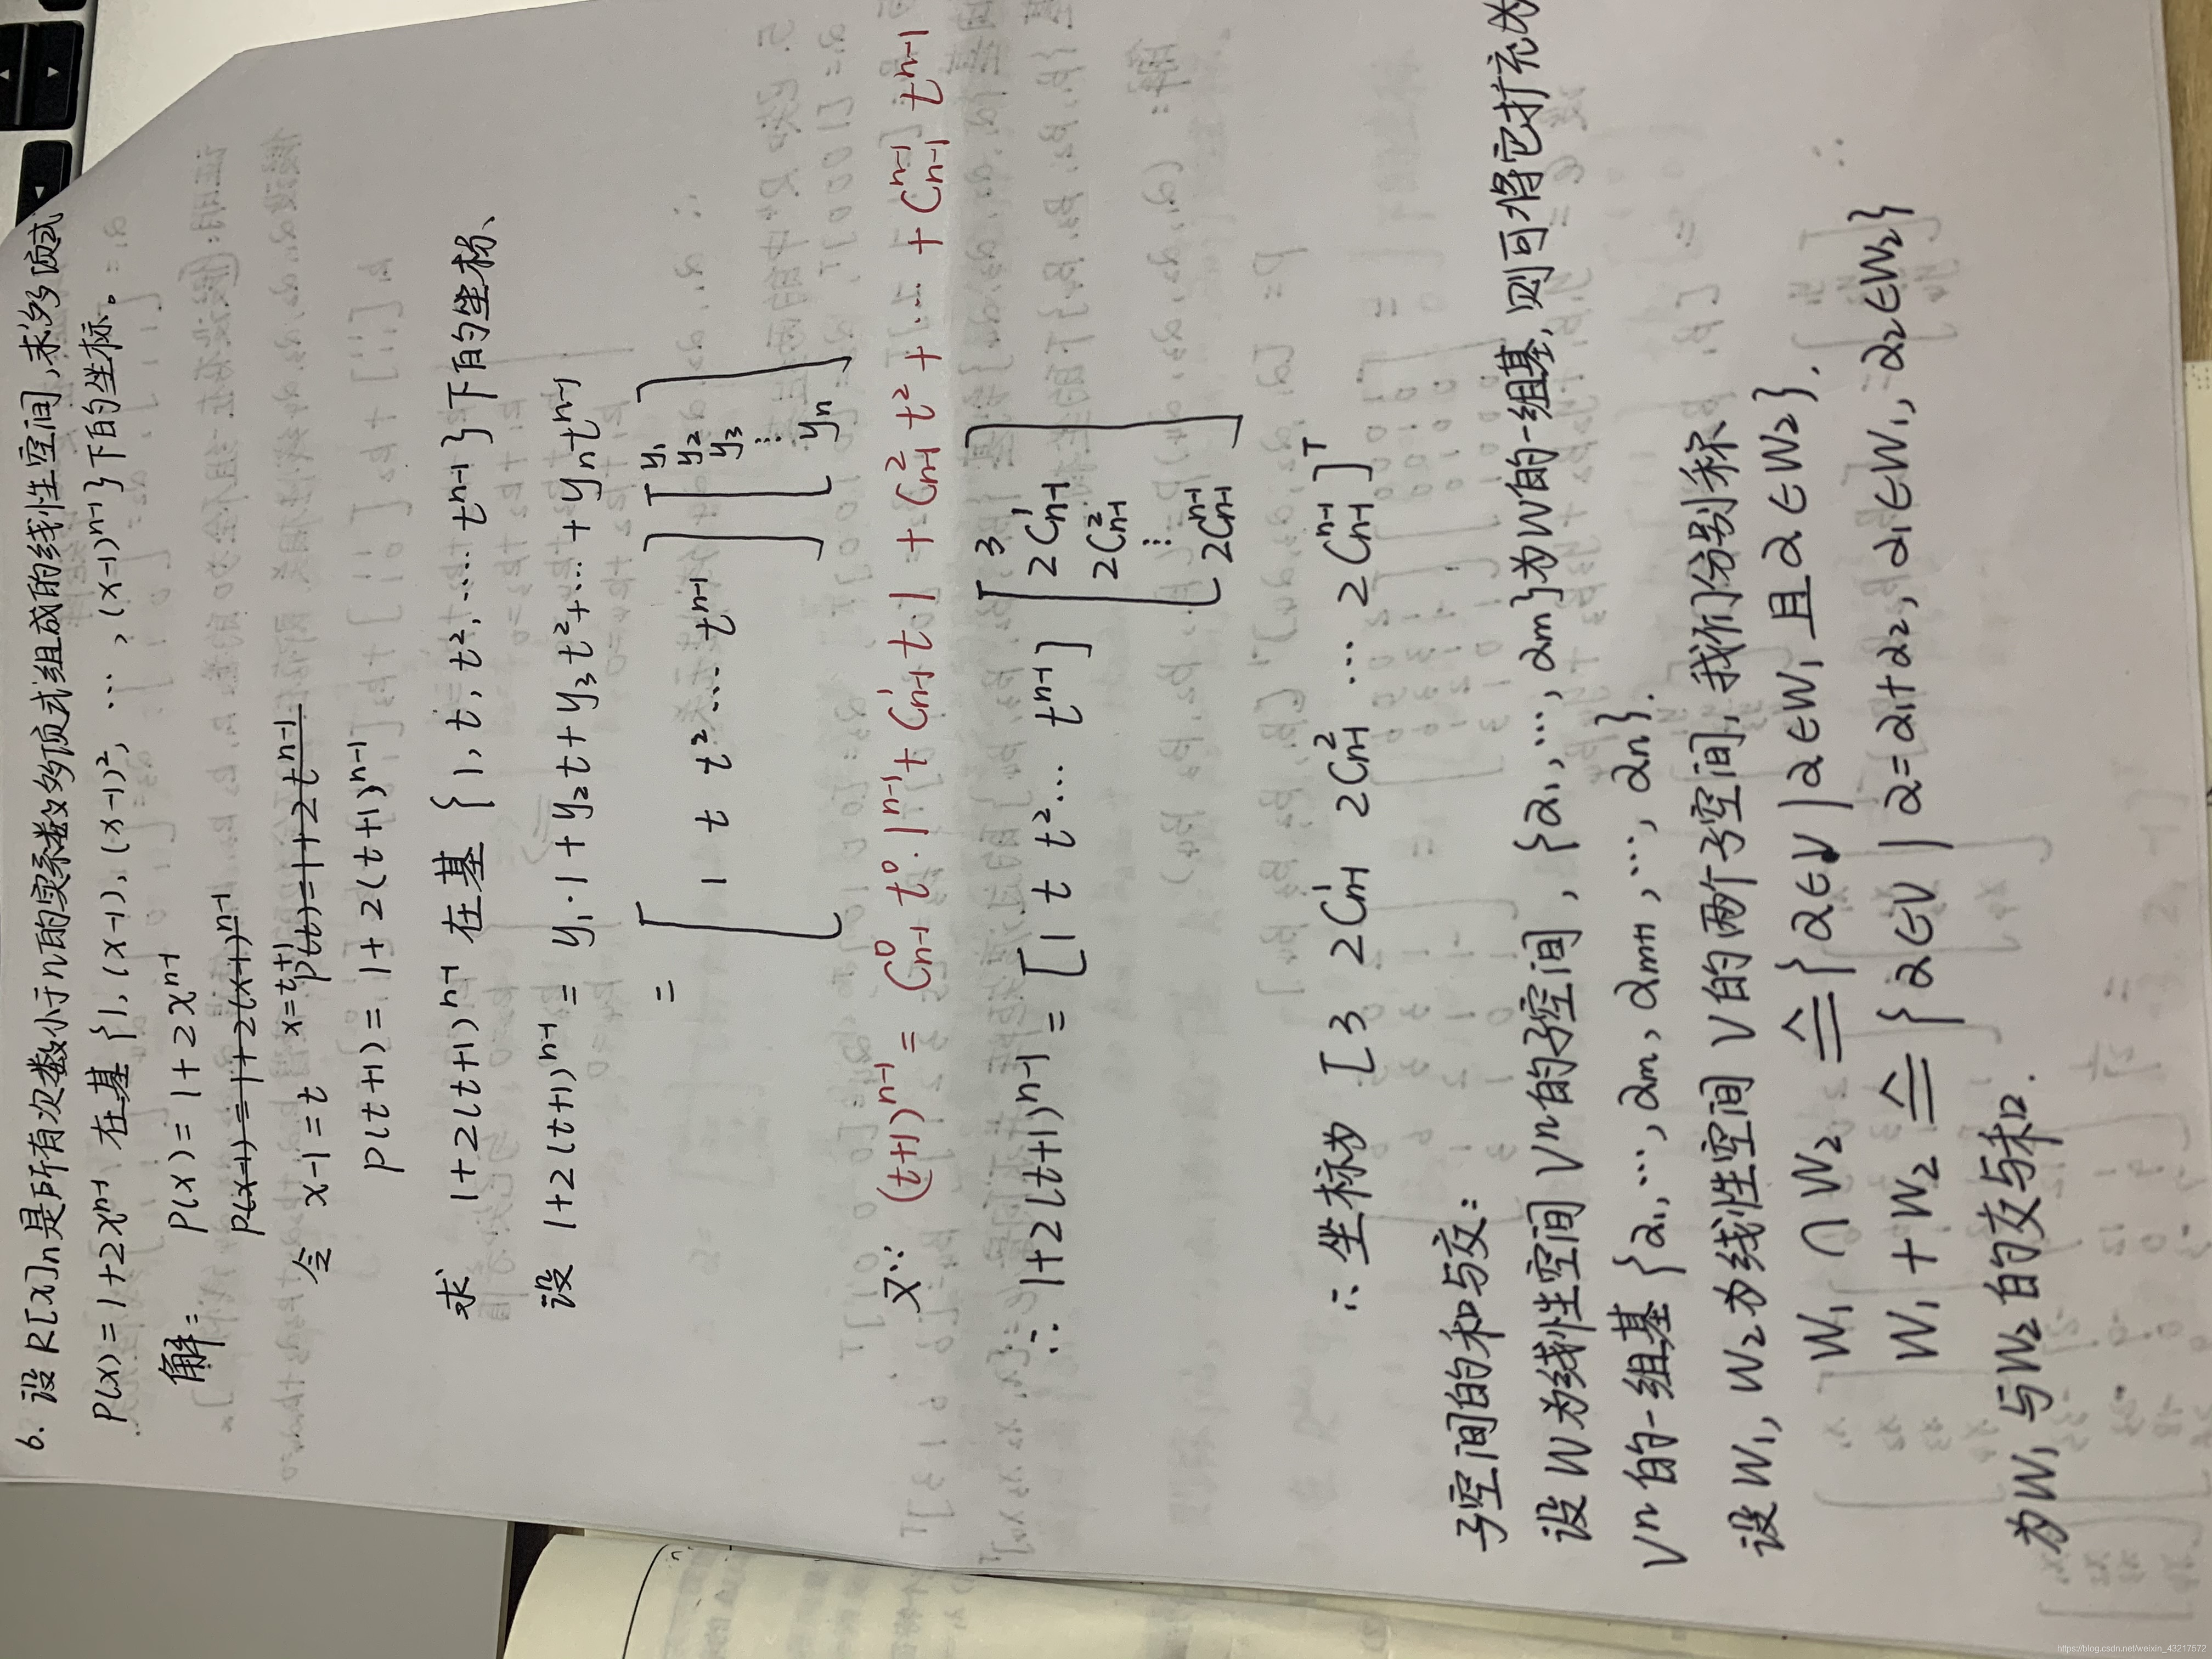 6. 设R[x]n是所有次数小于n的实系数多项式组成的线性空间,求多项式
P(x)=1+2xⁿ⁻¹ 在基{1,(x-1),(x-1)²,…,(x-1)ⁿ⁻¹}下的坐标。
解: P(x)=1+2xⁿ⁻¹
P(x-1)=1+2(x-1)ⁿ⁻¹
令 x-1=t x=t+1 P(t)=1+2tⁿ⁻¹
P(t+1)=1+2(t+1)ⁿ⁻¹
求 1+2(t+1)ⁿ⁻¹ 在基{1,t,t²,… tⁿ⁻¹}下的坐标、
设 1+2(t+1)ⁿ⁻¹ = y₁·1+y₂t+y₃t²+…+yₙtⁿ⁻¹
= [1 t t² … tⁿ⁻¹][y₁ y₂ y₃ ⋮ yₙ]
又∵ (t+1)ⁿ⁻¹ = C⁰ₙ₋₁ t⁰·1ⁿ⁻¹ + C¹ₙ₋₁ t·1 + C²ₙ₋₁ t² + … + Cⁿ⁻¹ₙ₋₁ tⁿ⁻¹
∴ 1+2(t+1)ⁿ⁻¹ = [1 t t² … tⁿ⁻¹][3 2C¹ₙ₋₁ 2C²ₙ₋₁ ⋮ 2Cⁿ⁻¹ₙ₋₁]
∴ 坐标为 [3 2C¹ₙ₋₁ 2C²ₙ₋₁ … 2Cⁿ⁻¹ₙ₋₁]ᵀ
子空间的和与交:
设W为线性空间Vⁿ的子空间,{α₁,…,αm}为W的一组基,则可将它扩充为
Vⁿ的一组基{α₁,…,αm,αm+1,…,αn}.
设W₁,W₂为线性空间V的两个子空间,我们分别称
W₁∩W₂ ≜ {α∈V|α∈W₁且α∈W₂}.
W₁+W₂ ≜ {α∈V|α=α₁+α₂,α₁∈W₁,α₂∈W₂}
为W₁与W₂的交与和.
https://blog.csdn.net/weixin_43217572